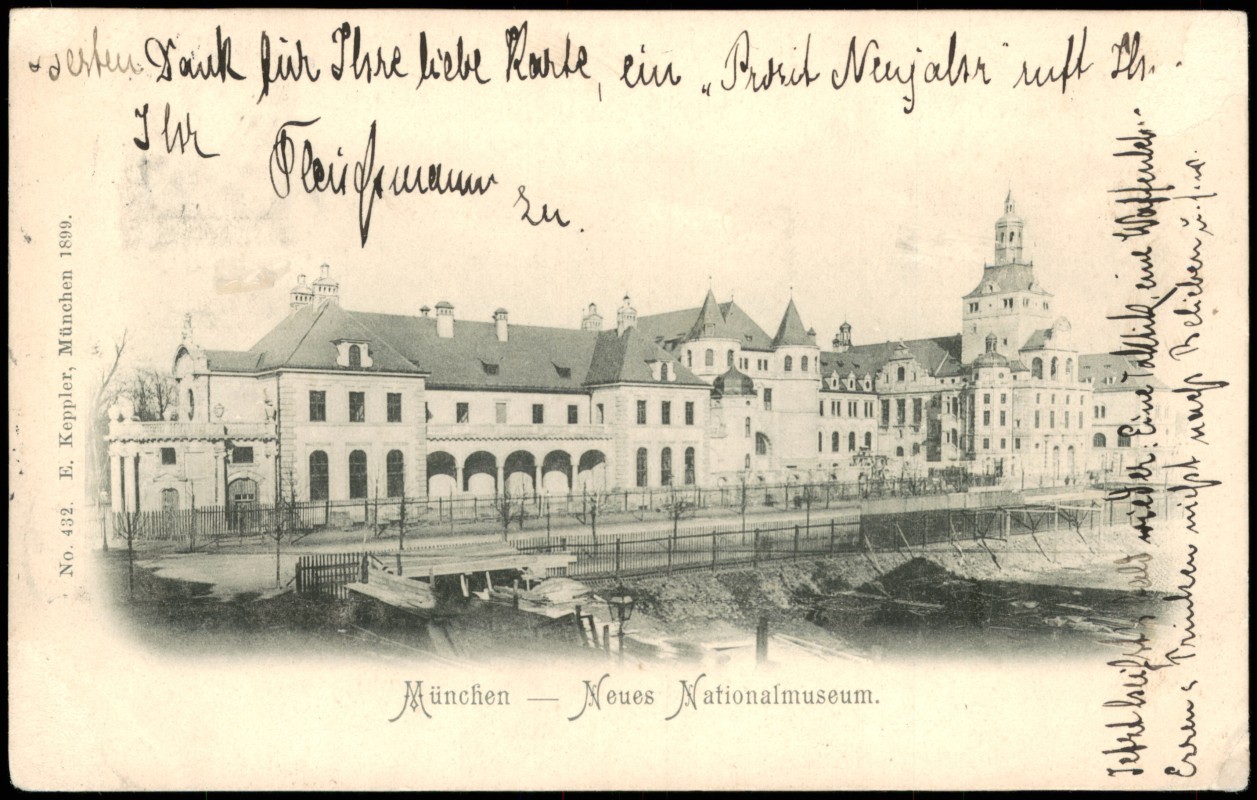 besten Dank für Ihre liebe Karte, ein „Prosit Neujahr" ruft Ih..
Ihr
Fleischmann
zu.
No. 432. E. Keppler, München 1899.
München — Neues Nationalmuseum.
Jetzt heißt's halt wieder: Eine Taktik, eine Waffenleh..
Essen & Trinken nicht nach Belieben